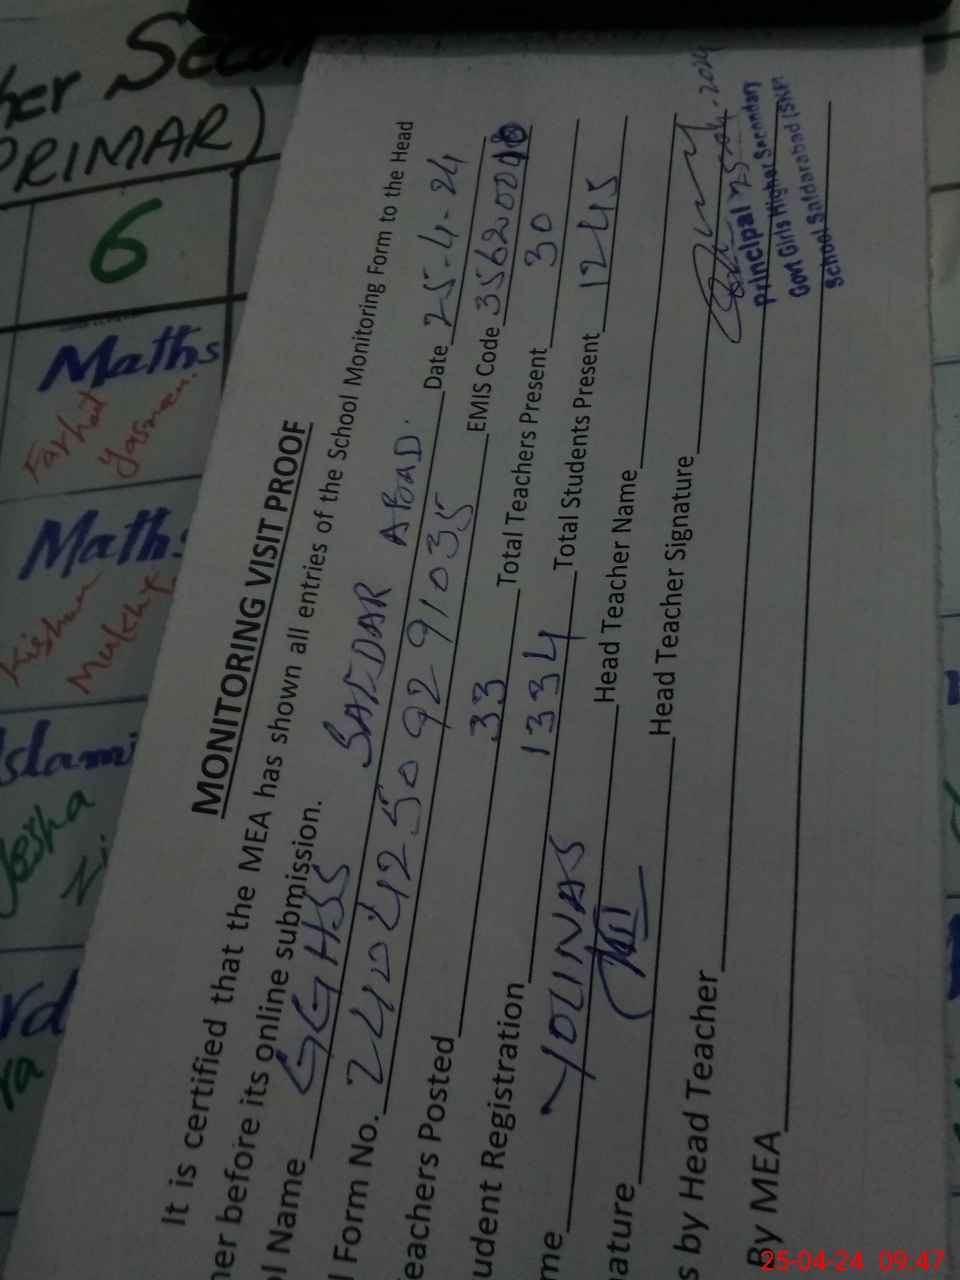 MONITORING VISIT PROOF
It is certified that the MEA has shown all entries of the School Monitoring Form to the Head
her before its online submission.
l Name GGHSS SAFDAR ABAD. Date 25-4-24
l Form No. 24042509291035 EMIS Code 35620040
eachers Posted 33 Total Teachers Present 30
udent Registration 1334 Total Students Present 1245
me YOUNAS Head Teacher Name
nature Head Teacher Signature
25-04-2024
Principal
Govt Girls Higher Secondary
School Safdarabad (SKP)
s by Head Teacher
By MEA
her Secon
PRIMAR)
6
Maths
Farhat
Yasmeen.
Maths
Kishwar
Islami
25-04-24 09:47